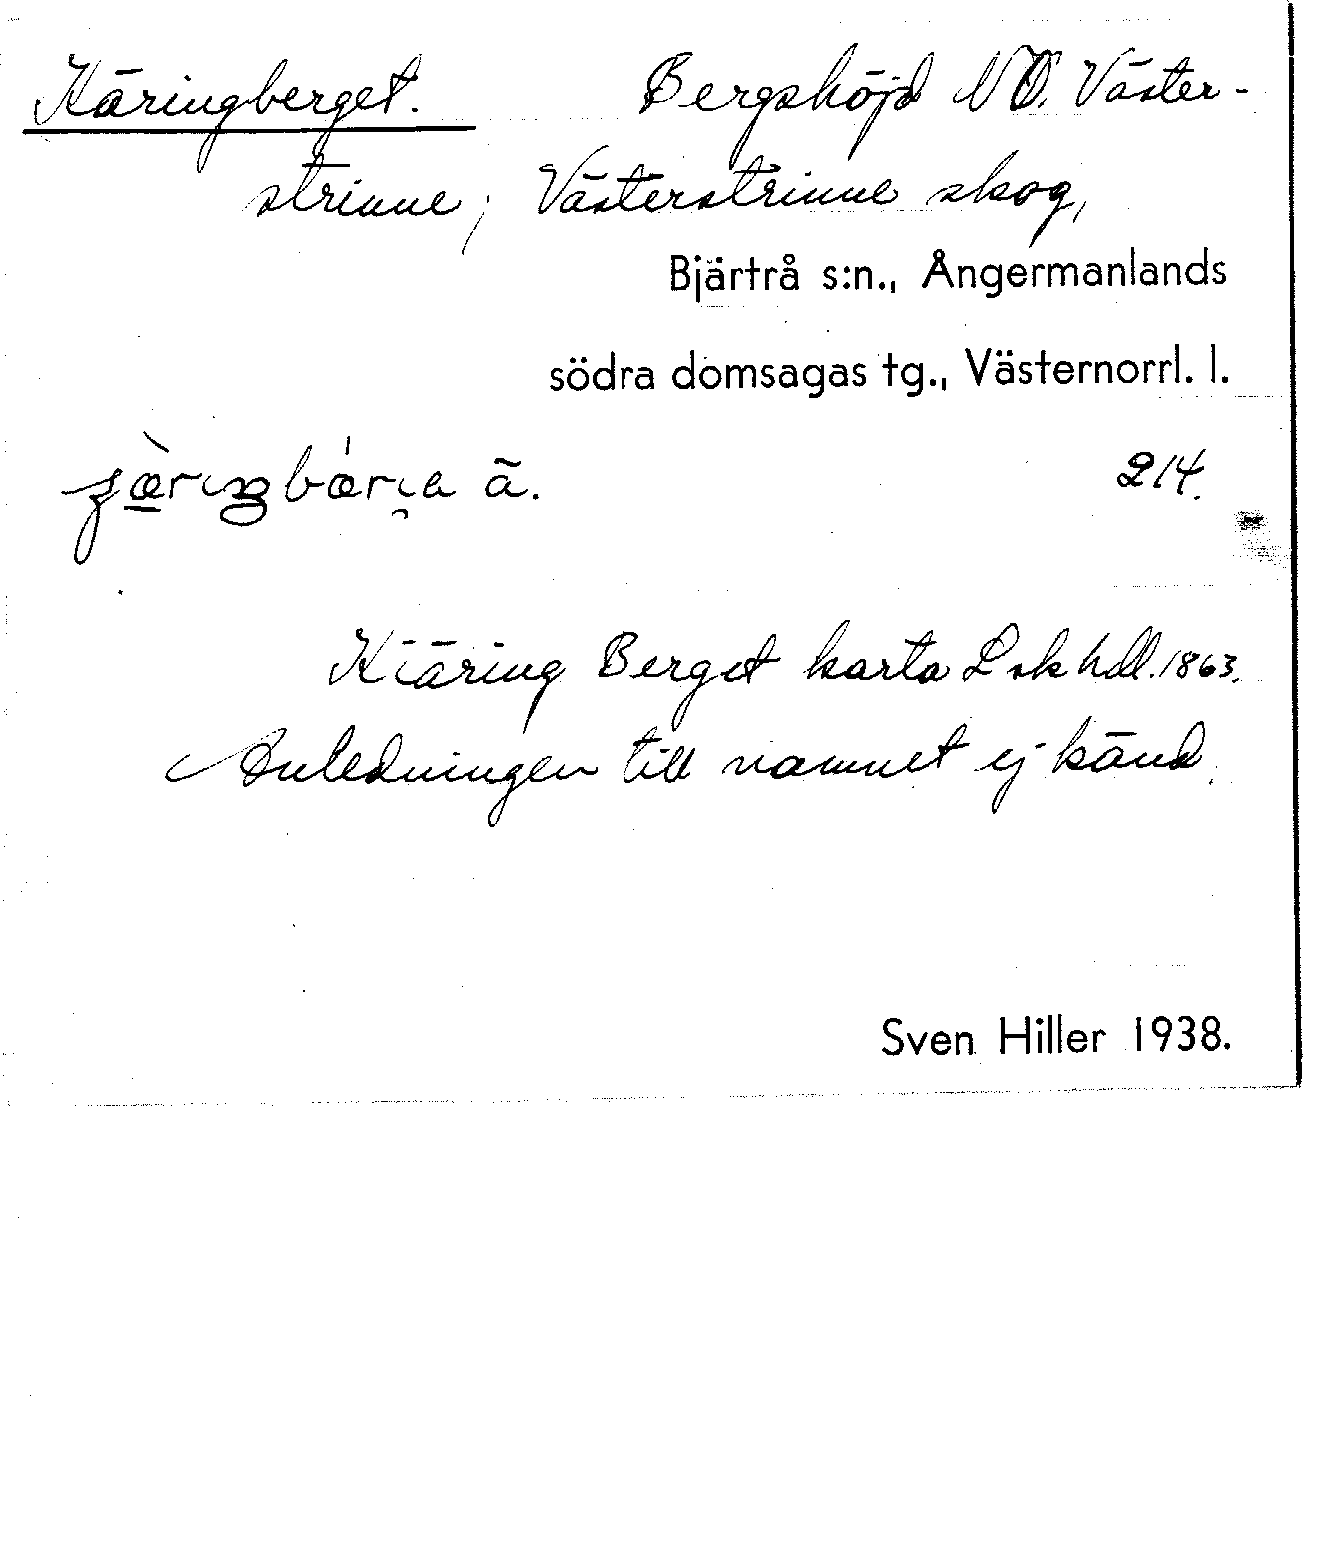 Käringberget. Bergshöjd NO. Väster-
strinne; Västerstrinne skog,
Bjärtrå s:n., Ångermanlands
södra domsagas tg., Västernorrl. l.
ã. 214.
Kiäring Berget karta L sk hdl. 1863.
Anledningen till namnet ej känd.
Sven Hiller 1938.